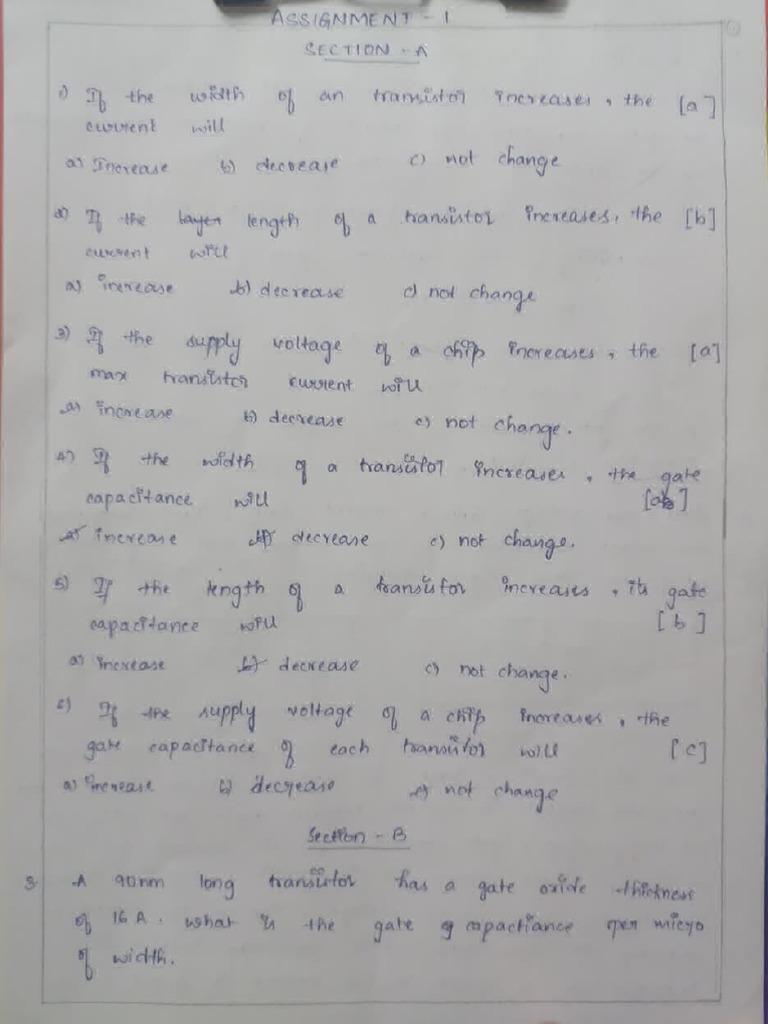 ASSIGNMENT - 1
SECTION - A
1) If the width of an transistor increases, the [a]
current will
a) Increase b) decrease c) not change
2) If the length of a transistor increases, the [b]
current will
a) increase b) decrease c) not change
3) If the supply voltage of a chip increases, the [a]
max transistor current will
a) increase b) decrease c) not change.
4) If the width of a transistor increases, the gate
capacitance will [a]
a) increase b) decrease c) not change.
5) If the length of a transistor increases, its gate
capacitance will [b]
a) increase b) decrease c) not change.
6) If the supply voltage of a chip increases, the
gate capacitance of each transistor will [c]
a) increase b) decrease c) not change
Section - B
3. A 90nm long transistor has a gate oxide thickness
of 16 A. what is the gate capactiance per micro
of width.